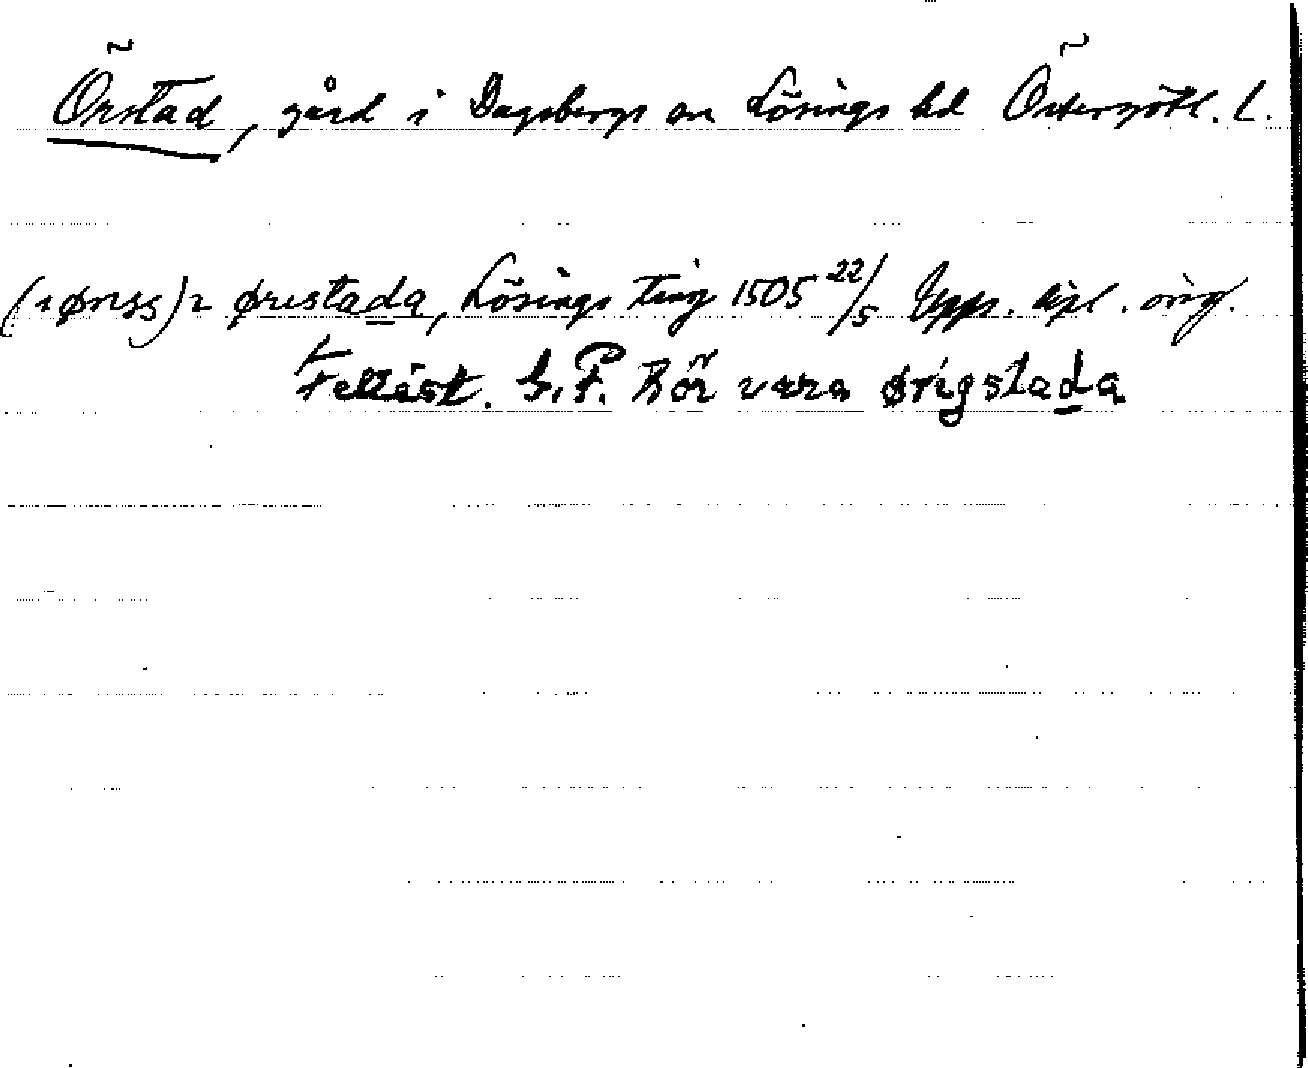 Örstad, gård i Dagsbergs sn Lösings hd Östergötl. l.
(i ørsss) 2 ørestada, Lösings ting 1505 22/5 Upps. dipl. orig.
Felläst. G.F. Bör vara ørigstada